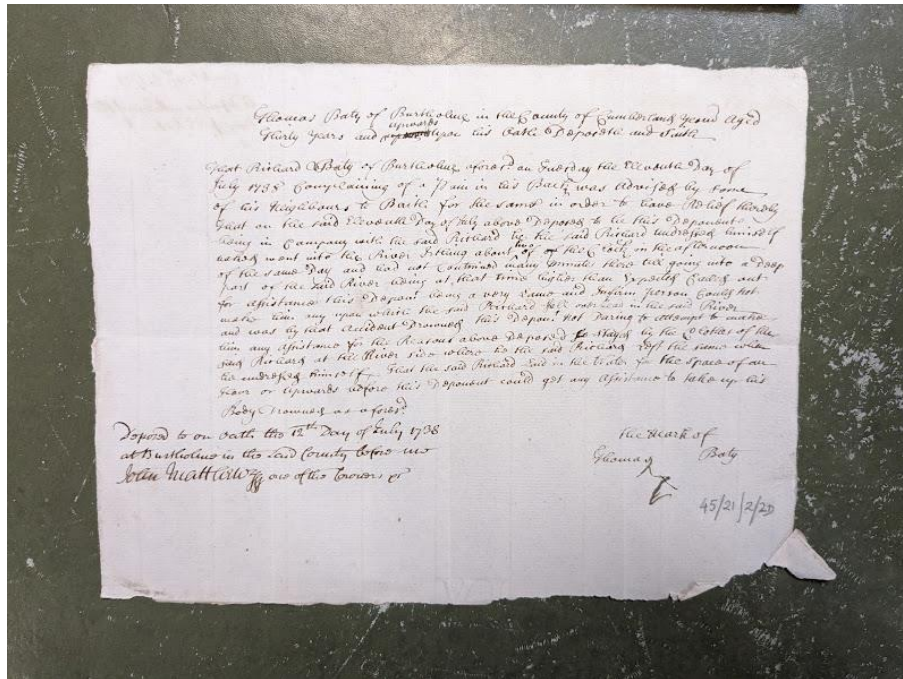 Thomas Baty of Burtholme in the County of Cumberland Yeom Aged
Thirty Years and upwards upon his Oath Deposeth and Saith
That Richard Baty of Burtholme afores.d on Tuesday the Eleventh Day of
July 1738 Complaining of a Pain in his Back was Advised by some
of his Neighbours to Bath for the same in order to have Relief thereby
that on the said Eleventh Day of July above Deposed to he this Deponent
being in Company with the said Richard he the said Richard undressed himself
went into the River Irthing about of the Clock in the afternoon
of the same Day and had not Continued many minutes there till going into a Deep
part of the said River being at that time higher than Called out
for assistance this Depon.t being a very Lame and Infirm person Could not
make him any upon which the said Richard in the said River
and was by that Accident Drowned this Depon.t not Daring to attempt to make
him any assistance for the Reasons above Deposed by the Clothes of the
said Richard at the River side where he the said Richard Left the same when
he undressed himself That the said Richard Laid in the Water for the space of an
hour or upwards before this Deponent could get any assistance to take up his
Body Drowned as afores.d
Deposed to on oath this 12th Day of July 1738
at Burtholme in the said County before me
John Matthews one of the Coroners
The Mark of
Thomas Baty
45/21/2/2D